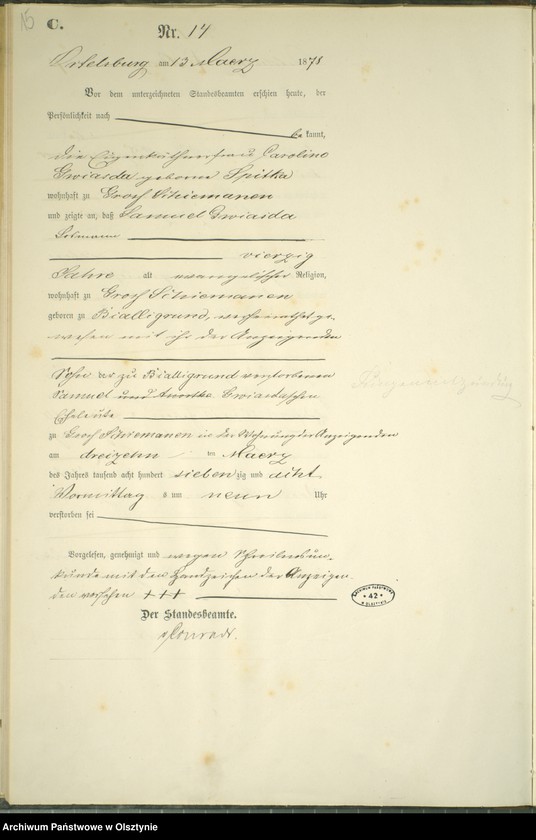 C.
Nr. 14
Ortelsburg am 13 Maerz 1878
Vor dem unterzeichneten Standesbeamten erschien heute, der
Persönlichkeit nach
be kannt,
die Eigenkäthnerfrau Caroline
Gwiasda geborne Spitka
wohnhaft zu Groß Schiemanen
und zeigte an, daß Samuel Gwiasda
vierzig
Jahre alt evangelischer Religion,
wohnhaft zu Groß Schiemanen
geboren zu Bialligrund, verheirathet ge-
wesen mit ihr der Anzeigenden
Sohn der zu Bialligrund verstorbenen
Samuel und Gwiasdaschen
Eheleute
zu Groß Schiemanen in der Wohnung der Anzeigenden
am dreizehn ten Maerz
des Jahres tausend acht hundert sieben zig und acht
Vormittag s um neun Uhr
verstorben sei
Vorgelesen, genehmigt und wegen Schreibensun-
kunde mit den Handzeichen der Anzeigen-
den versehen +++
Der Standesbeamte.
Conrad.
ARCHIWUM PAŃSTWOWE
* 42 *
W OLSZTYNIE
Archiwum Państwowe w Olsztynie